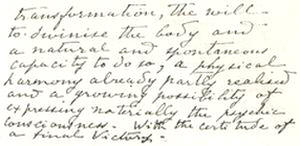 transformation, the will
to divinise the body and
a natural and spontaneous
capacity to do so; a physical
harmony already partly realised
and a growing possibility of
expressing materially the psychic
consciousness. With the certitude of
a final Victory.